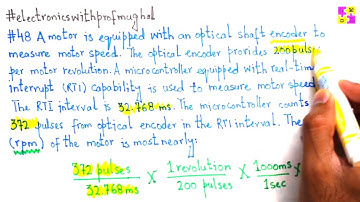 #electronicswithprofmughal
#48 A motor is equipped with an optical shaft encoder to
measure motor speed. The optical encoder provides 200 puls
per motor revolution. A microcontroller equipped with real-tim
interrupt (RTI) capability is used to measure motor speed
The RTI interval is 32.768 ms. The microcontroller counts
372 pulses from optical encoder in the RTI interval. The
(rpm) of the motor is most nearly:
372 pulses / 32.768 ms × 1 revolution / 200 pulses × 1000ms / 1sec ×